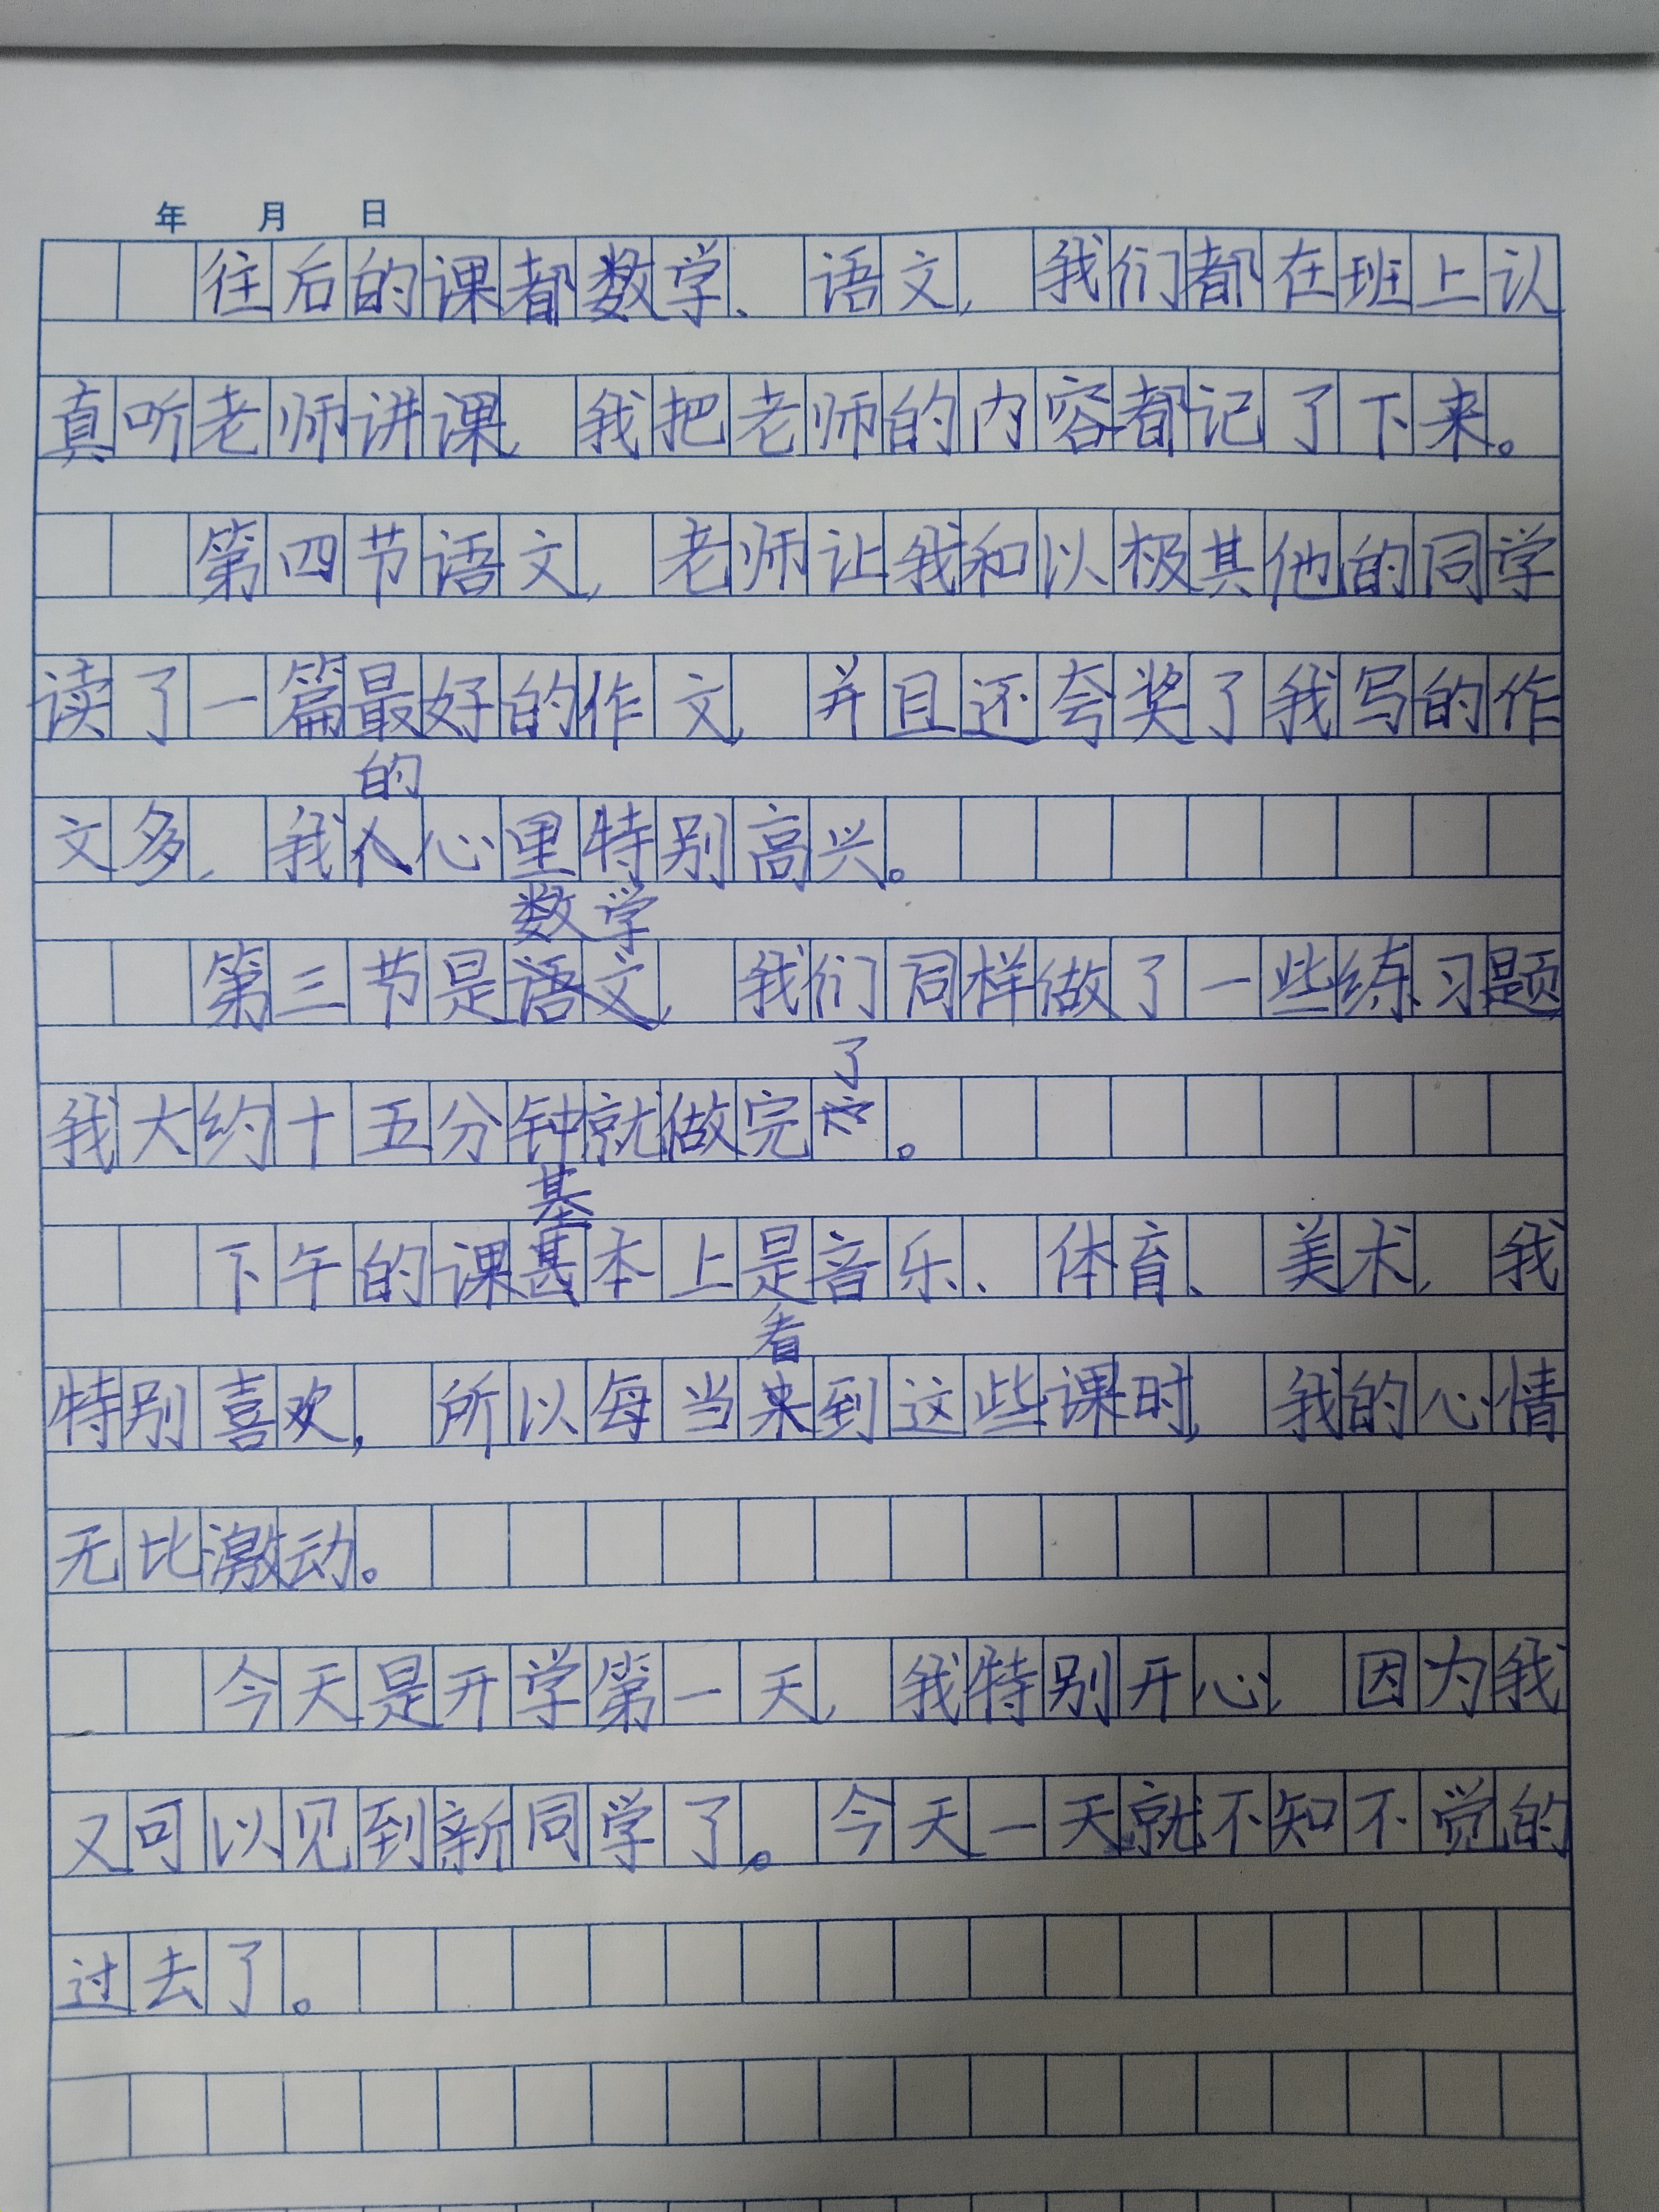 年 月 日
往后的课都数学、语文，我们都在班上认
真听老师讲课，我把老师的内容都记了下来。
第四节语文，老师让我和以极其他的同学
读了一篇最好的作文，并且还夸奖了我写的作
的
文多，我心里特别高兴。
数学
第三节是语文，我们同样做了一些练习题
了
我大约十五分钟就做完。
基
下午的课甚本上是音乐、体育、美术，我
看
特别喜欢，所以每当来到这些课时，我的心情
无比激动。
今天是开学第一天，我特别开心，因为我
又可以见到新同学了。今天一天就不知不觉的
过去了。